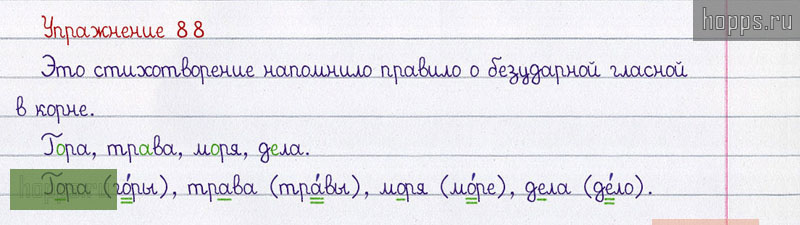 hopps.ru
Упражнение 88
Это стихотворение напомнило правило о безударной гласной
в корне.
Гора, трава, моря, дела.
Гора (го́ры), трава (тра́вы), моря (мо́ре), дела (де́ло).
hopps.ru